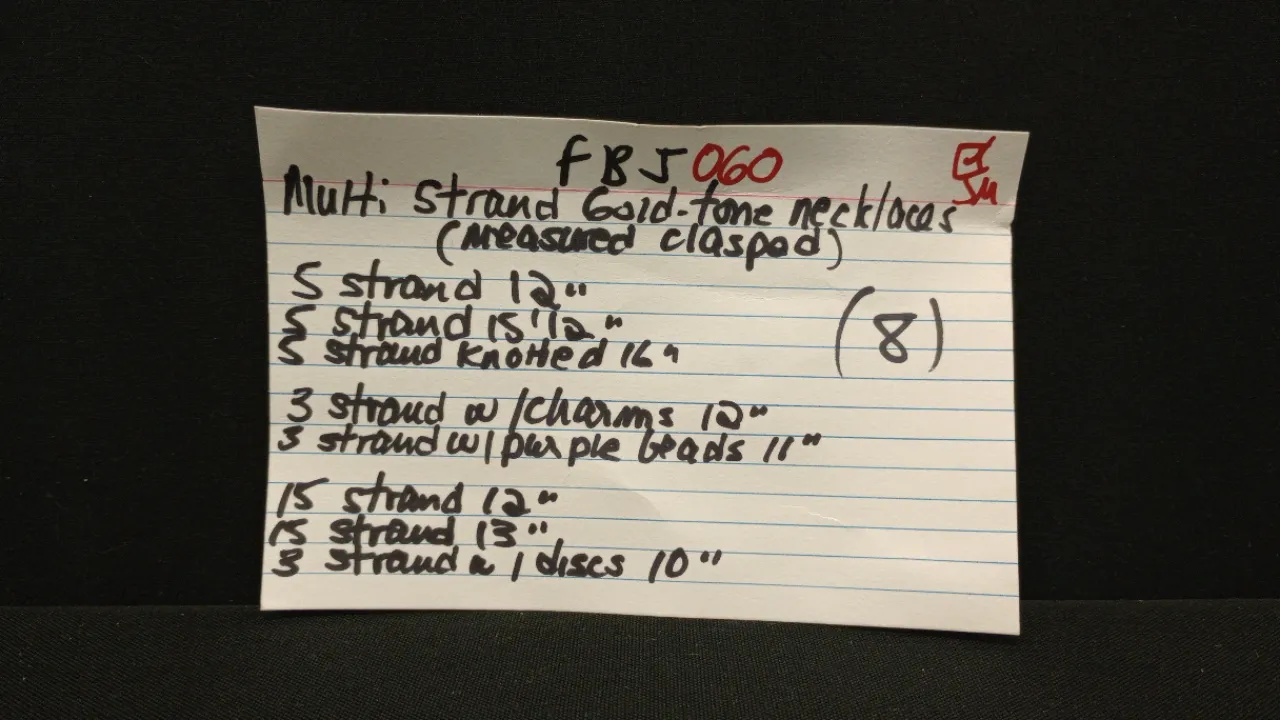 FBJ 060
SM
Multi Strand Gold-tone necklaces
(measured clasped)
5 strand 12"
5 strand 15" 12"
5 strand Knotted 16"
(8)
3 strand w/charms 12"
3 strand w/purple beads 11"
15 strand 12"
15 strand 13"
3 strand w/discs 10"